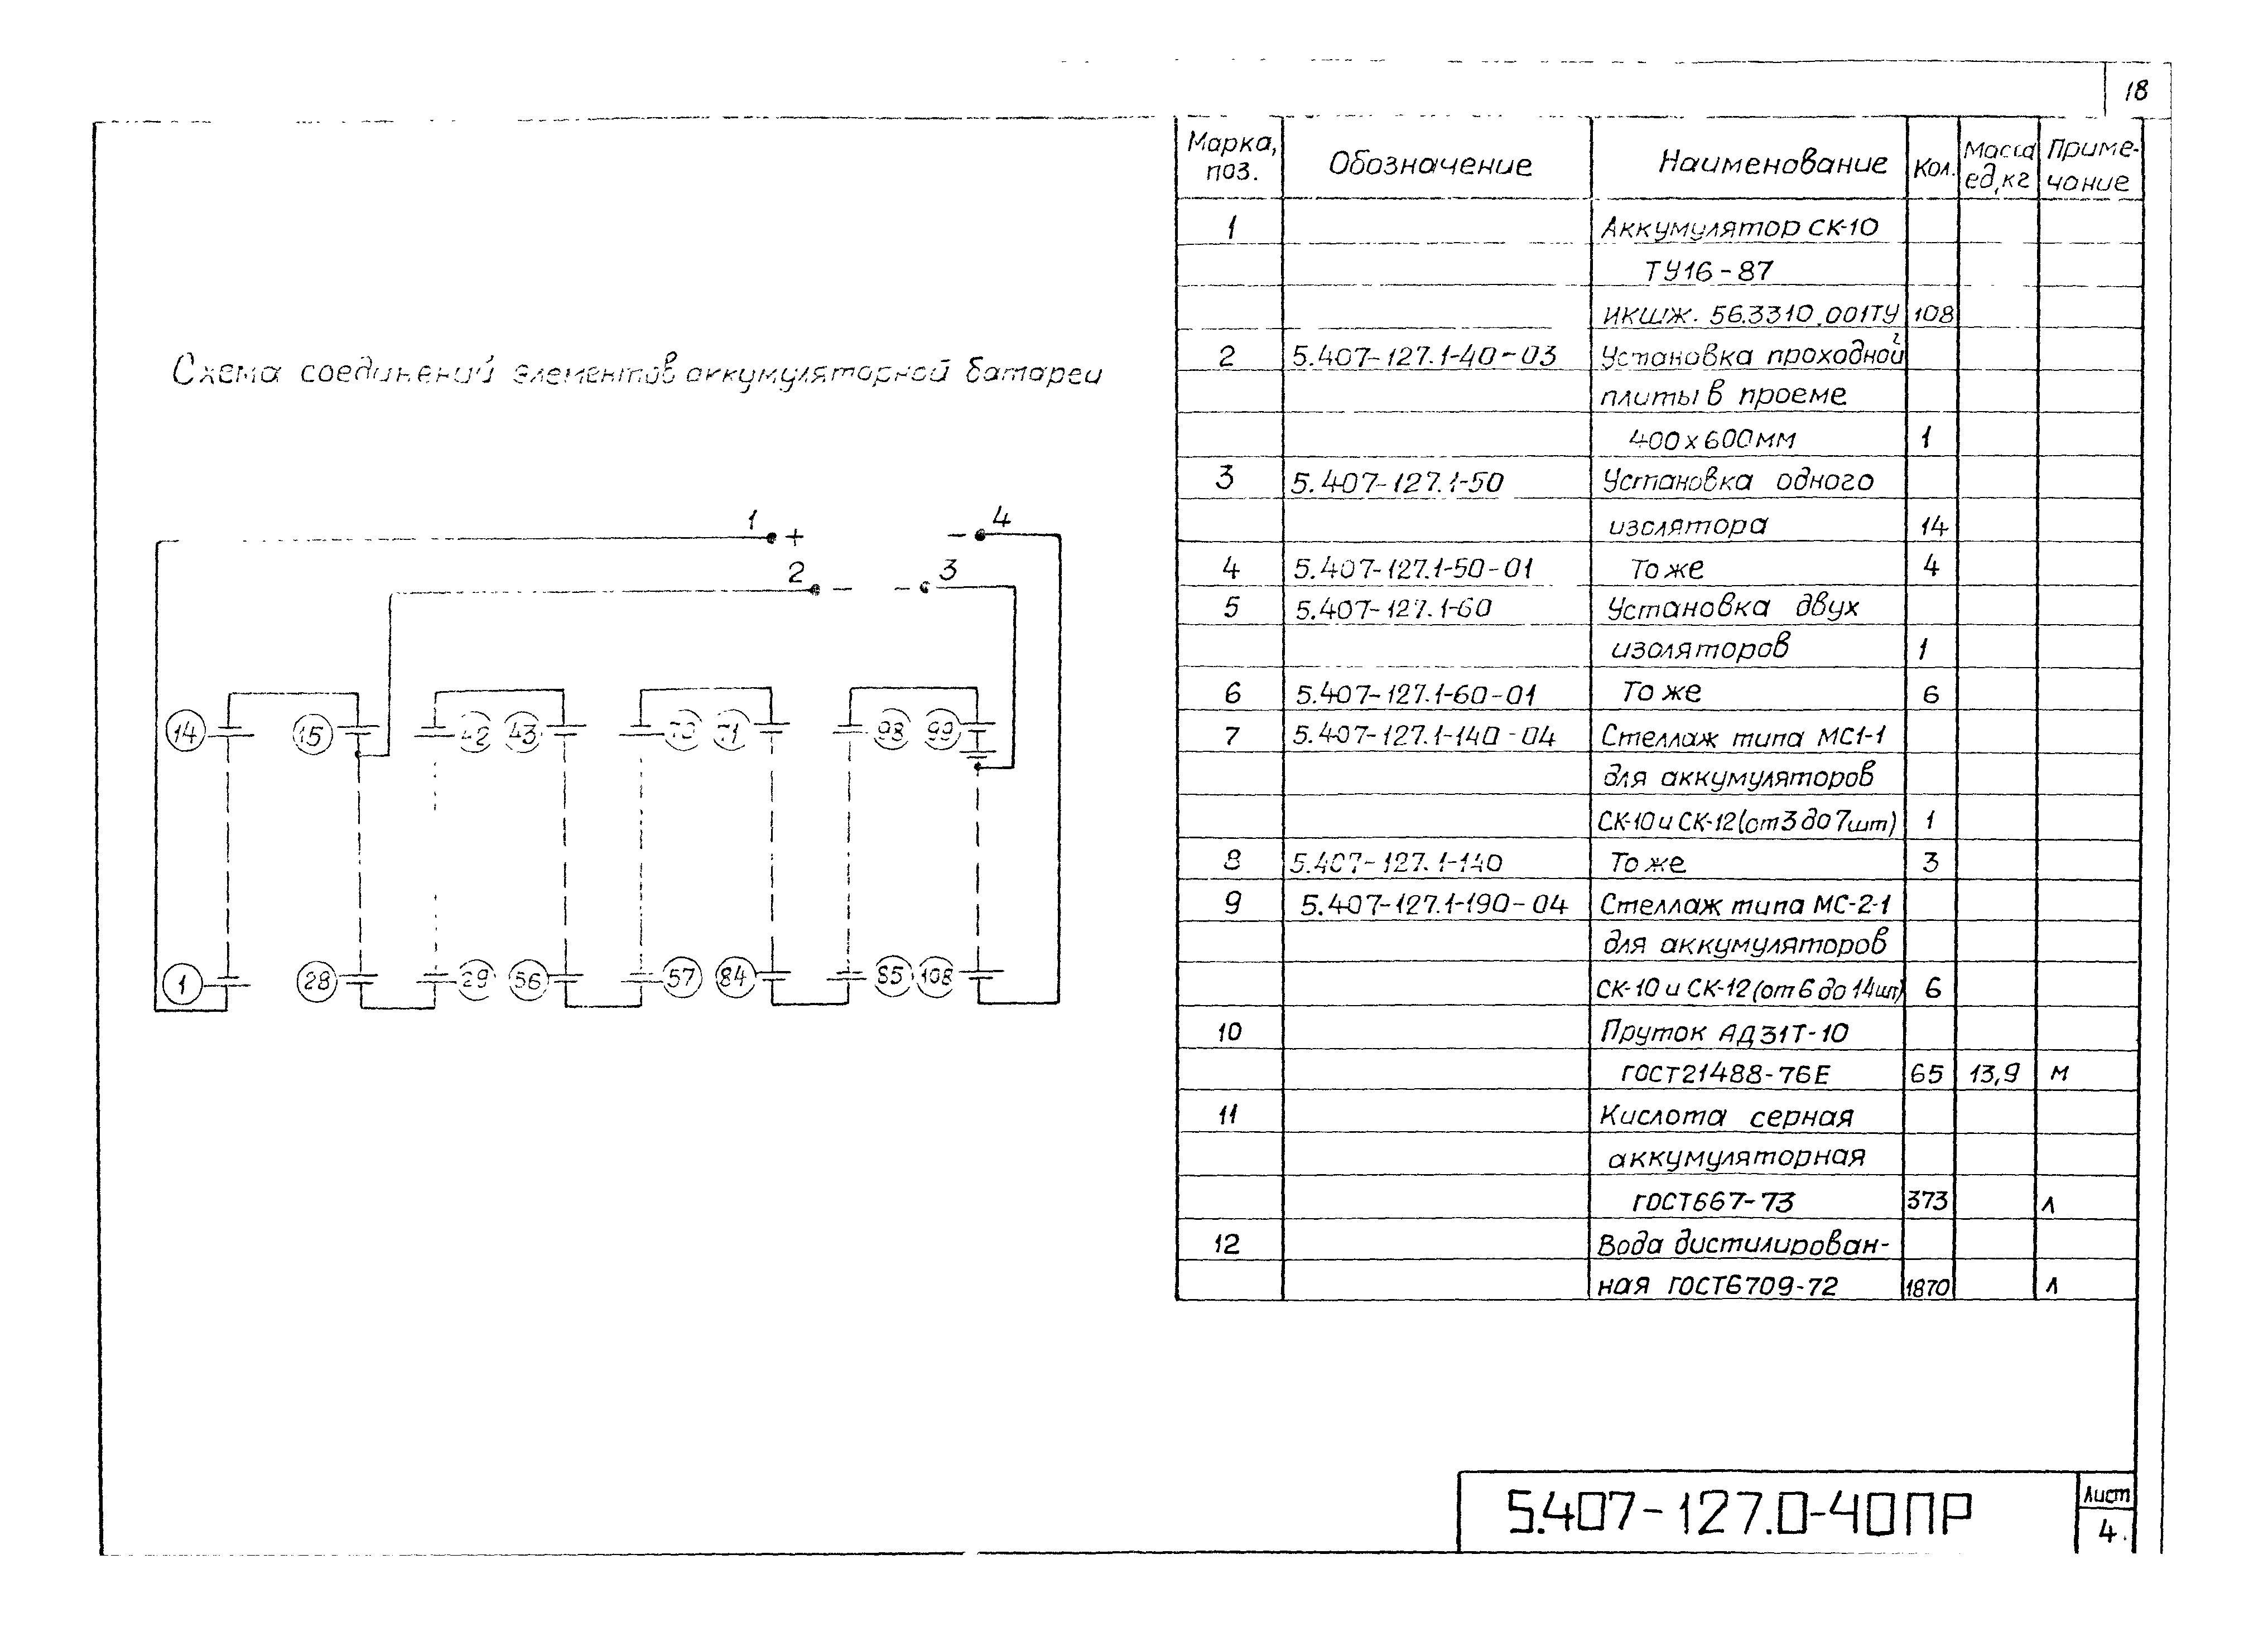 18
Схема соединений элементов аккумуляторной батареи
1 + - 4
2 - - 3
14 15 42 43 70 71 98 99
1 28 29 56 57 84 85 108
Марка, поз. Обозначение Наименование Кол. Масса ед,кг Приме-чание
1 Аккумулятор СК-10
ТУ16-87
ИКШЖ. 56.3310.001ТУ 108
2 5.407-127.1-40-03 Установка проходной
плиты в проеме
400х600мм 1
3 5.407-127.1-50 Установка одного
изолятора 14
4 5.407-127.1-50-01 То же 4
5 5.407-127.1-60 Установка двух
изоляторов 1
6 5.407-127.1-60-01 То же 6
7 5.407-127.1-140-04 Стеллаж типа МС1-1
для аккумуляторов
СК-10 и СК-12(от 3 до 7шт) 1
8 5.407-127.1-140 То же 3
9 5.407-127.1-190-04 Стеллаж типа МС-2-1
для аккумуляторов
СК-10 и СК-12(от 6 до 14шт) 6
10 Пруток АД31Т-10
ГОСТ21488-76Е 65 13,9 м
11 Кислота серная
аккумуляторная
ГОСТ667-73 373 л
12 Вода дистилирован-
ная ГОСТ6709-72 1870 л
5.407-127.0-40ПР
Лист
4.